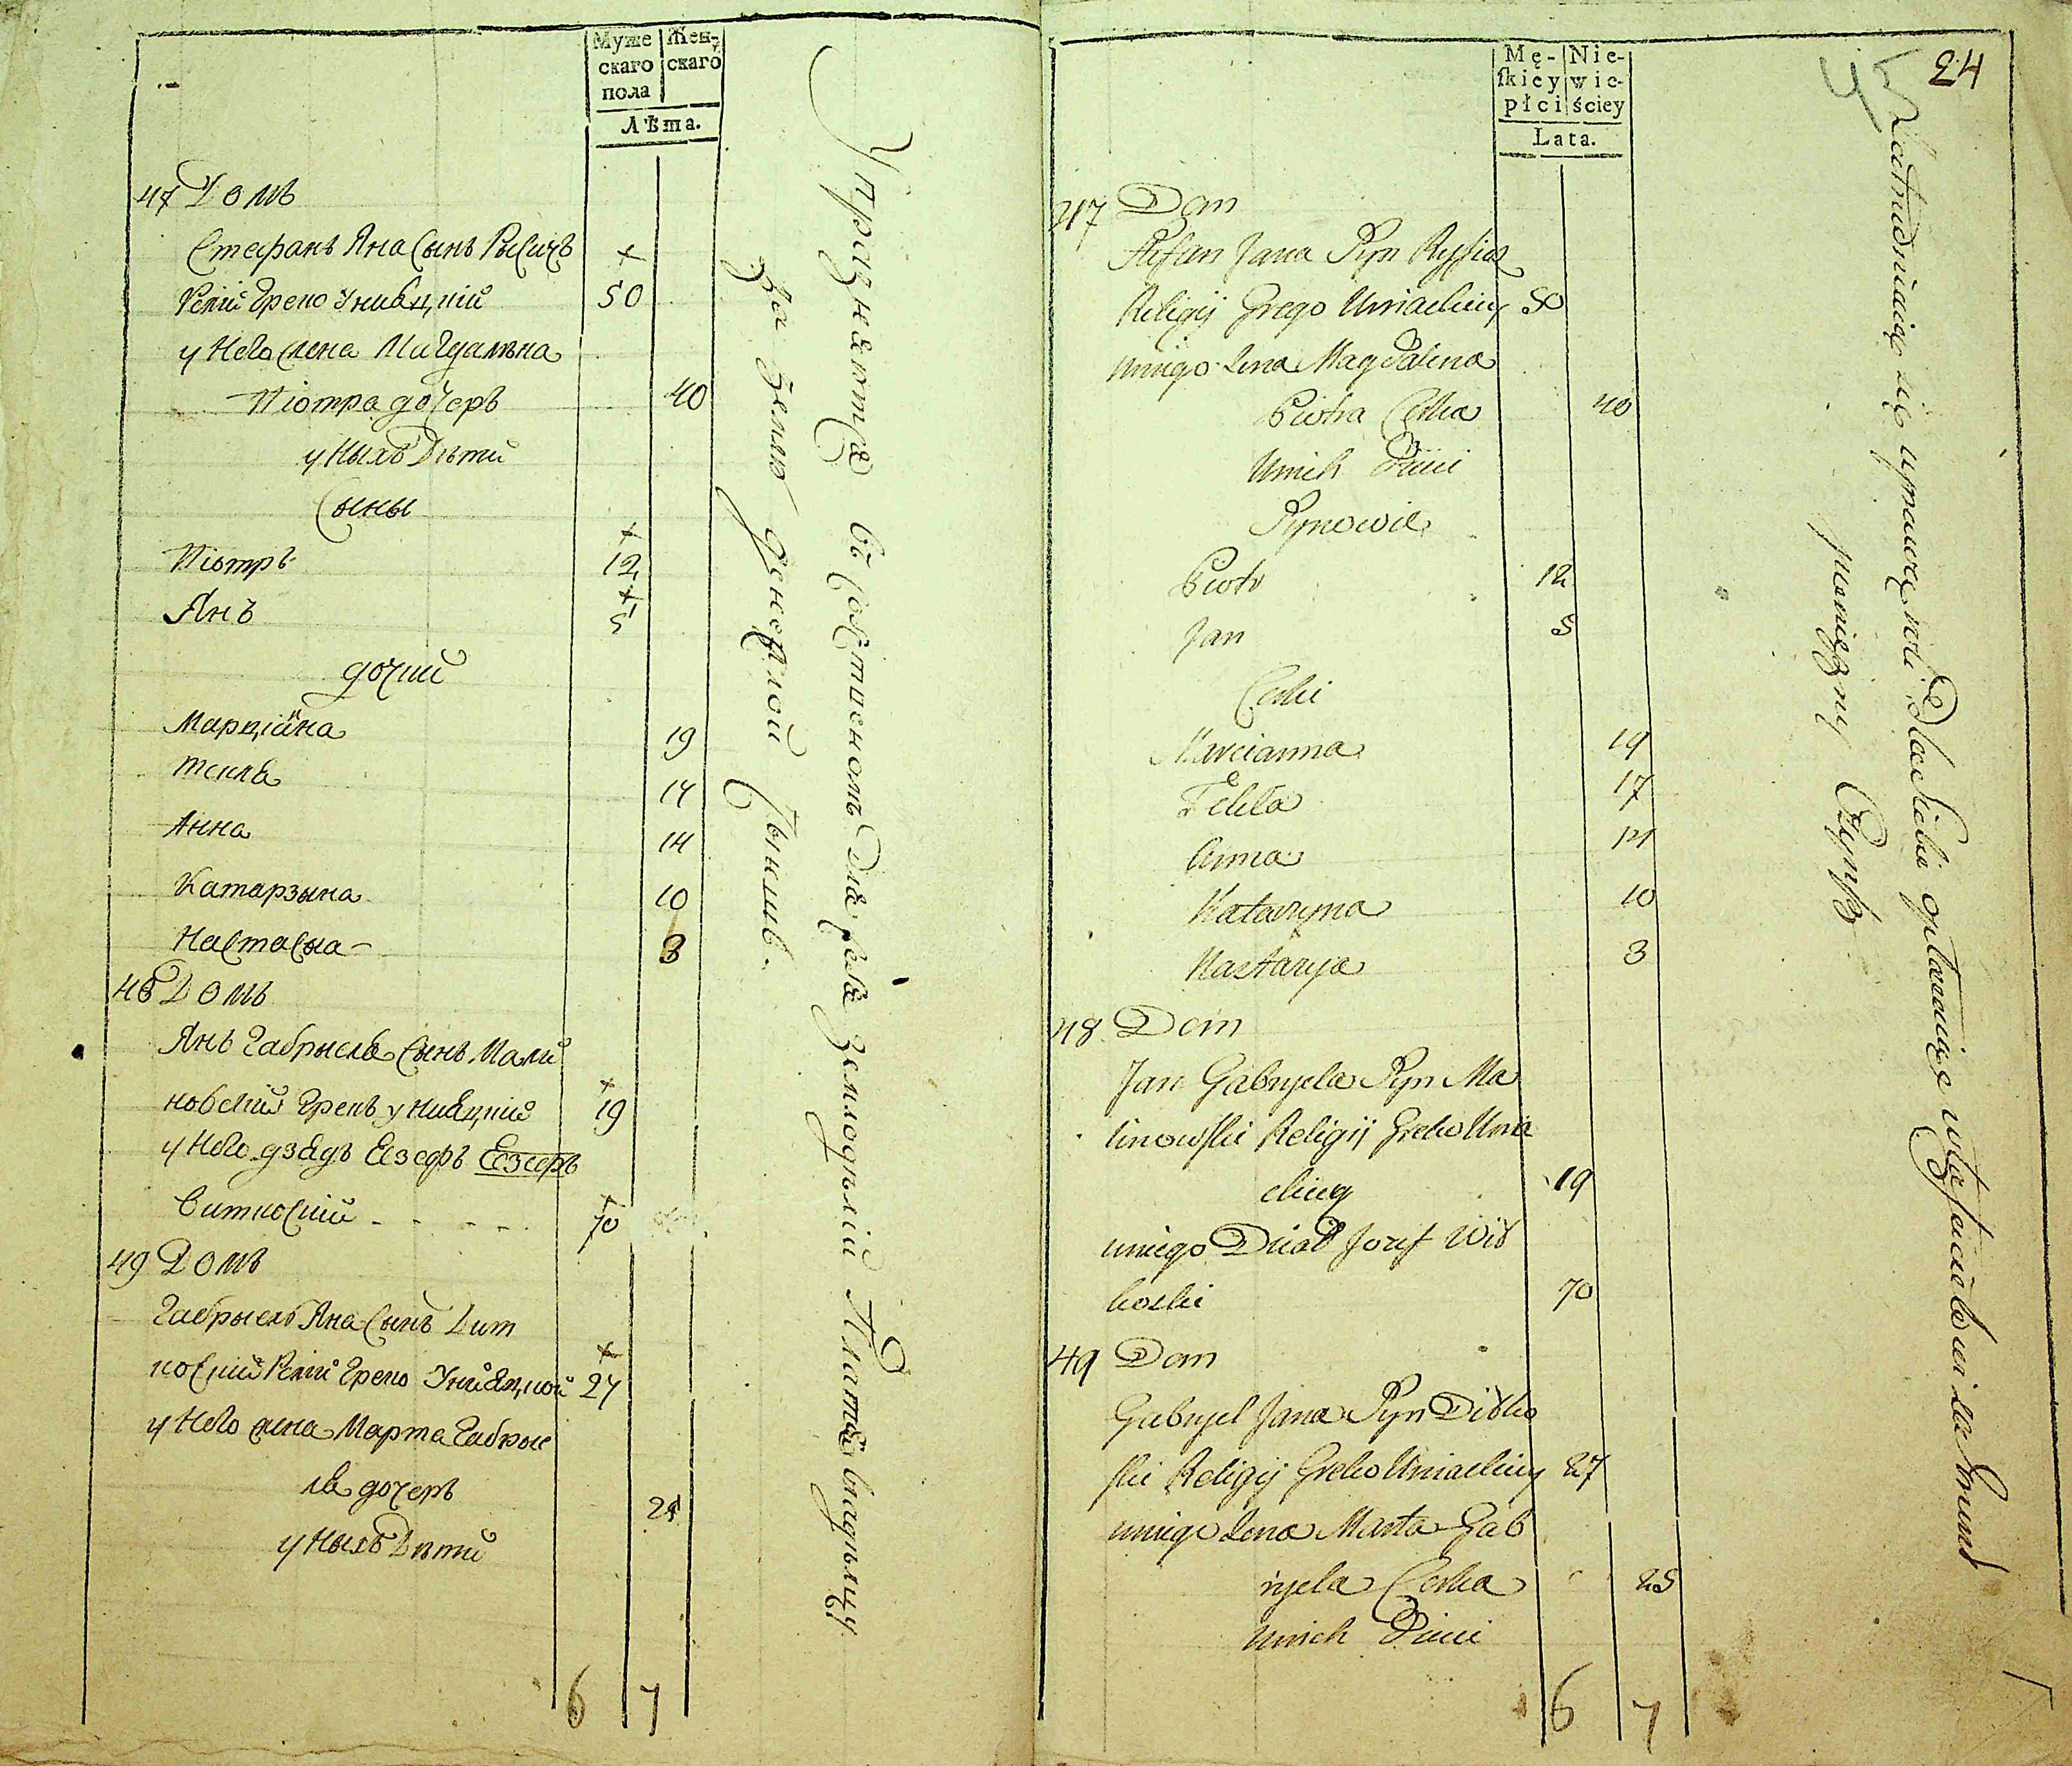 Муже
скаго
пола
Жен-
скаго
Лѣта.
47 Домъ
Стефанъ Яна Сынъ Рысичъ +
Релій Греко Униацкій 50
у Него Жена Магдалена
Піотра дочеръ 40
у Ныхъ Дѣти
Сыны
Піотръ + 12
Янъ + 5
дочии
Марціанна 19
Текля 17
Анна 14
Катарзына 10
Настасыа - 3
48 Домъ
Янъ Габрыеля Сынъ Мали
новскій Грекъ униацкій + 19
у Него дзядъ Езефъ Езефъ
Виткоскій - - - - + 70
49 Домъ
Габрыель Яна Сынъ Дит
коскій Релій Греко Униацкой + 27
у Него жена Марта Габрые
ля дочеръ 25
у Ныхъ Дѣти
6 7
Упражняютця въ собственномъ для себя земледѣліи Платя владѣлцу
за землю денежной Чыншъ.
Mę-
skiey
płci
Nie-
wie-
ściey
Lata.
45 24
47 Dom
Stefan Jana Syn Rysicz
Religij Greko Uniackiey 50
uniego Zona Magdalena
Piotra Corka 40
Unich Dzieci
Synowie
Piotr 12
Jan 5
Corki
Marcianna 19
Tekla 17
Anna 14
Katarzyna 10
Nastazya 3
48 Dom
Jan Gabryela Syn Ma
linowski Religij Greko Unia
ckiey 19
uniego Dziad Jozef Wit
koski 70
49 Dom
Gabryel Jana Syn Ditko
ski Religij Greko Uniackiey 27
uniego Zona Marta Gab
ryela Corka 25
Unich Dzieci
6 7
Zatrudniaią się uprawą roli Dla Siebie opłacaiąc właścicielowi za Grunt
pieniężny Czynsz